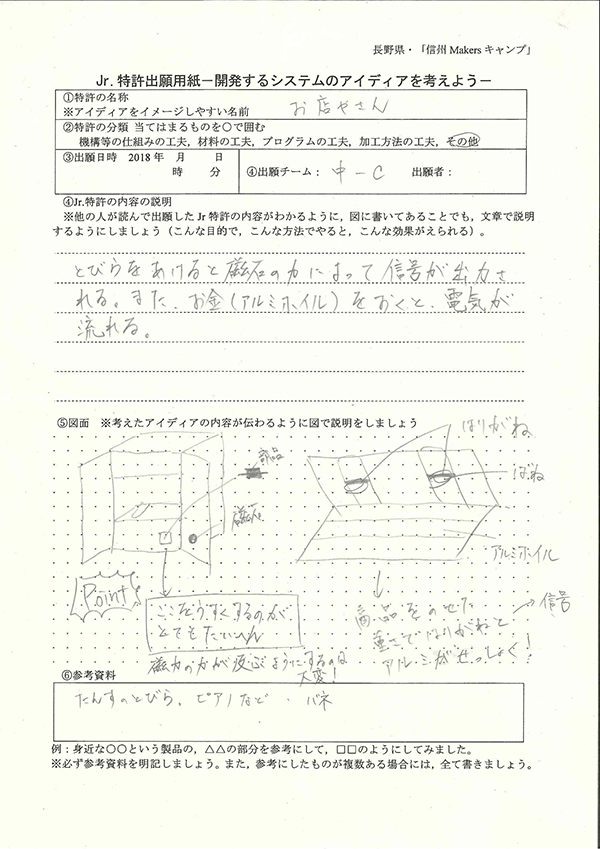 長野県・「信州 Makers キャンプ」
Jr. 特許出願用紙－開発するシステムのアイディアを考えよう－
①特許の名称
※アイディアをイメージしやすい名前
お店やさん
②特許の分類 当てはまるものを○で囲む
機構等の仕組みの工夫，材料の工夫，プログラムの工夫，加工方法の工夫，その他
③出願日時 2018年 月 日
時 分
④出願チーム： 中－C 出願者：
④Jr.特許の内容の説明
※他の人が読んで出願した Jr 特許の内容がわかるように，図に書いてあることでも，文章で説明
するようにしましょう（こんな目的で，こんな方法でやると，こんな効果がえられる）。
とびらをあけると磁石の力によって信号が出力さ
れる。また、お金（アルミホイル）をおくと、電気が
流れる。
⑤図面 ※考えたアイディアの内容が伝わるように図で説明をしましょう
はりがね
商品
ばね
磁石
アルミホイル
Point!
ここをうすくするのが
とてもたいへん
磁力の力が及ぶようにするのは
大変!
商品をのせた
重さではりがねと
アルミがせっしょく!
信号
⑥参考資料
たんすのとびら、ピアノなど・バネ
例：身近な○○という製品の，△△の部分を参考にして，□□のようにしてみました。
※必ず参考資料を明記しましょう。また，参考にしたものが複数ある場合には，全て書きましょう。